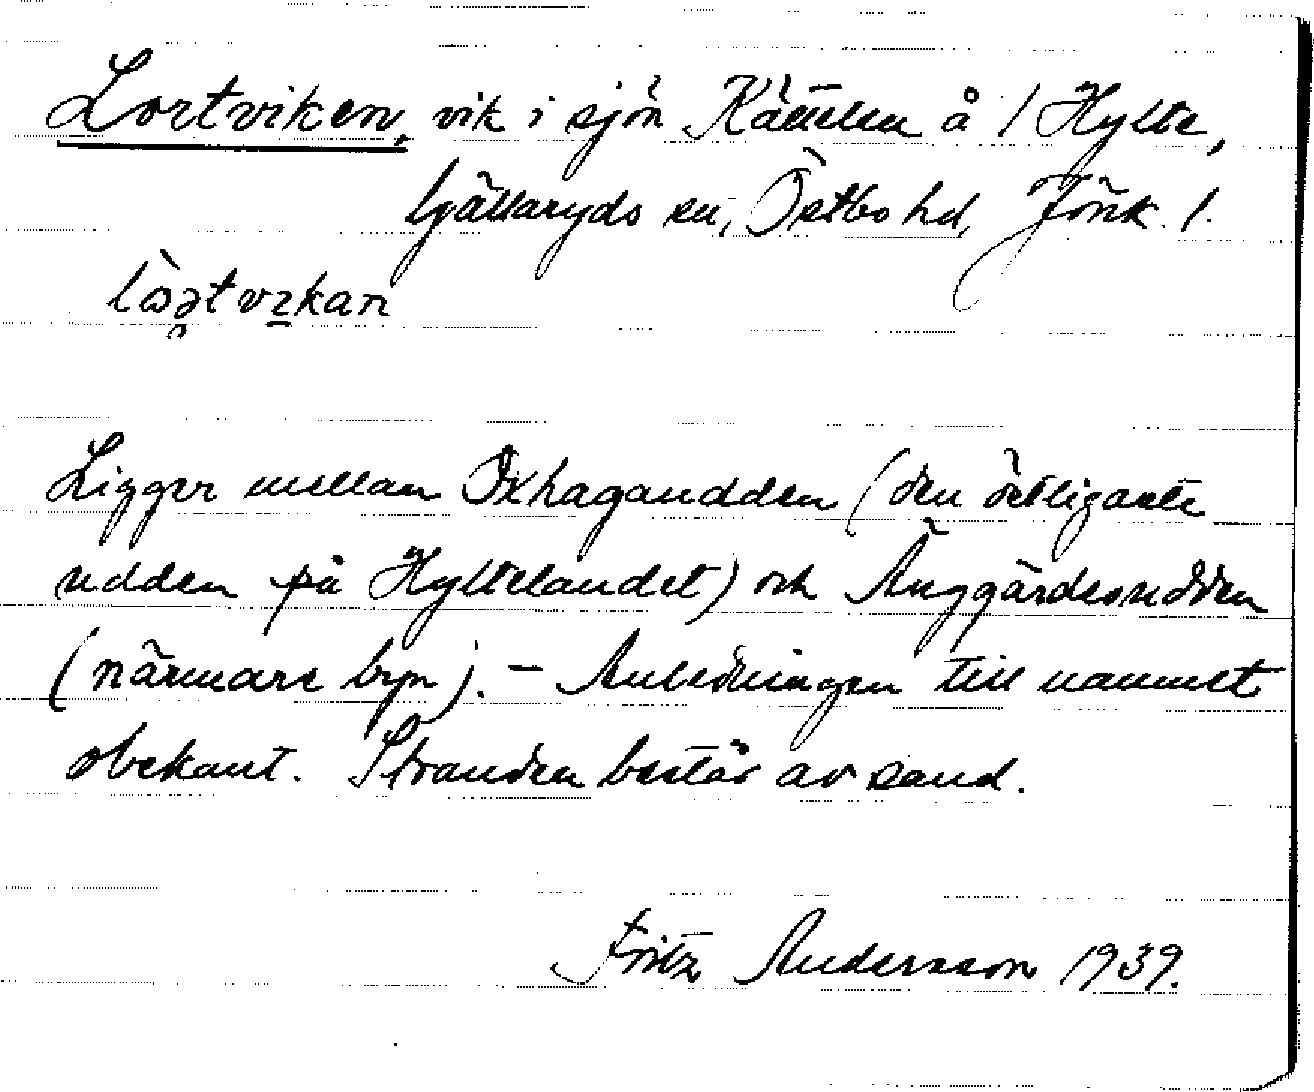 Lortviken, vik i sjön Rännilen å / Hylte,
Gällaryds sn, Östbo hd, Jönk. l.
Ligger mellan Oxhagaudden (den östligaste
udden på Hyltelandet) och Änggärdesudden
(närmare byn). – Anledningen till namnet
obekant. Stranden består av sand.
Fritz Andersson 1939.